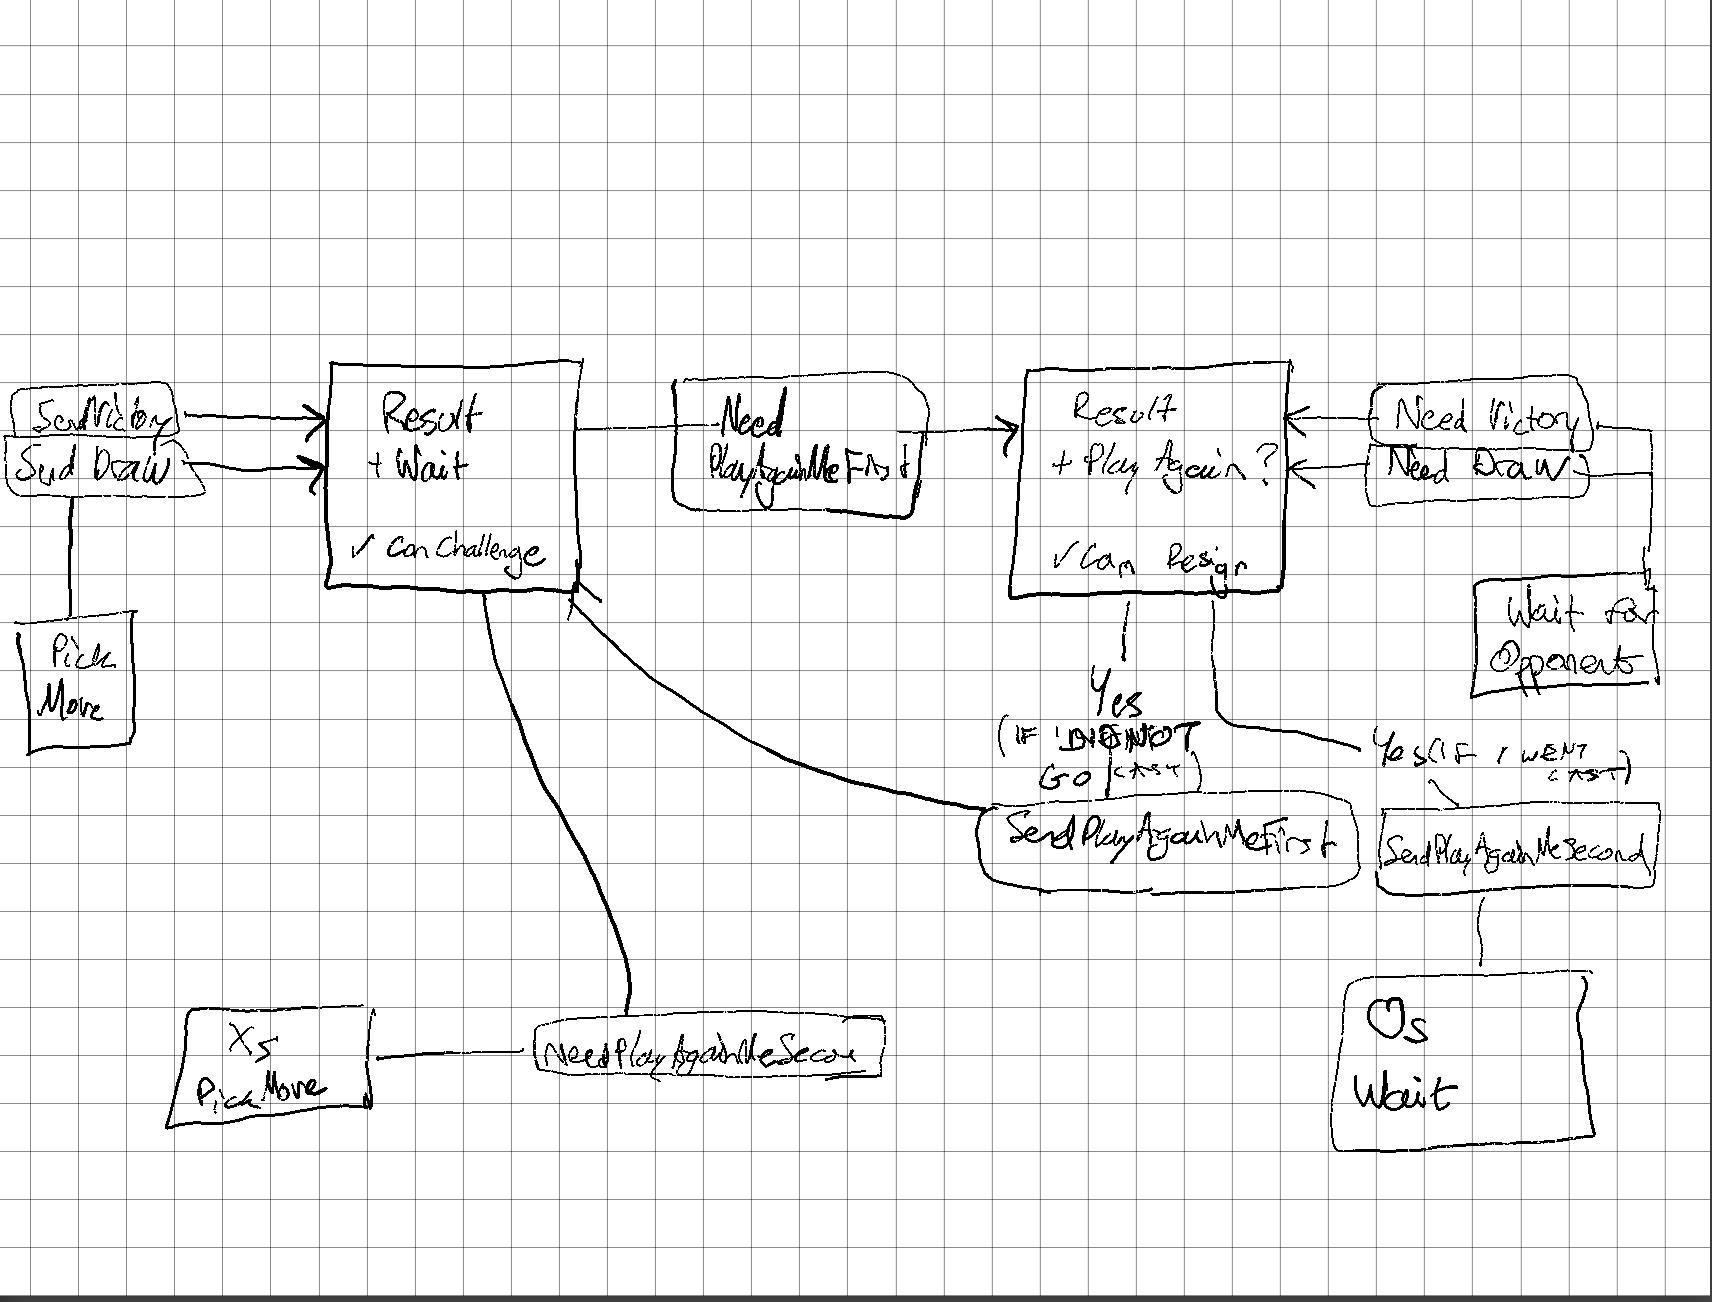 SendVictory
Send Draw
Pick
Move
Result
+ Wait
✓ Can Challenge
Need
PlayAgainMeFirst
Result
+ Play Again?
✓ Can Resign
Need Victory
Need Draw
Wait for
Opponent
Yes
(IF I DID NOT
GO LAST)
Yes (IF I WENT
LAST)
SendPlayAgainMeFirst
SendPlayAgainMeSecond
Xs
Pick Move
NeedPlayAgainMeSecon
Os
Wait